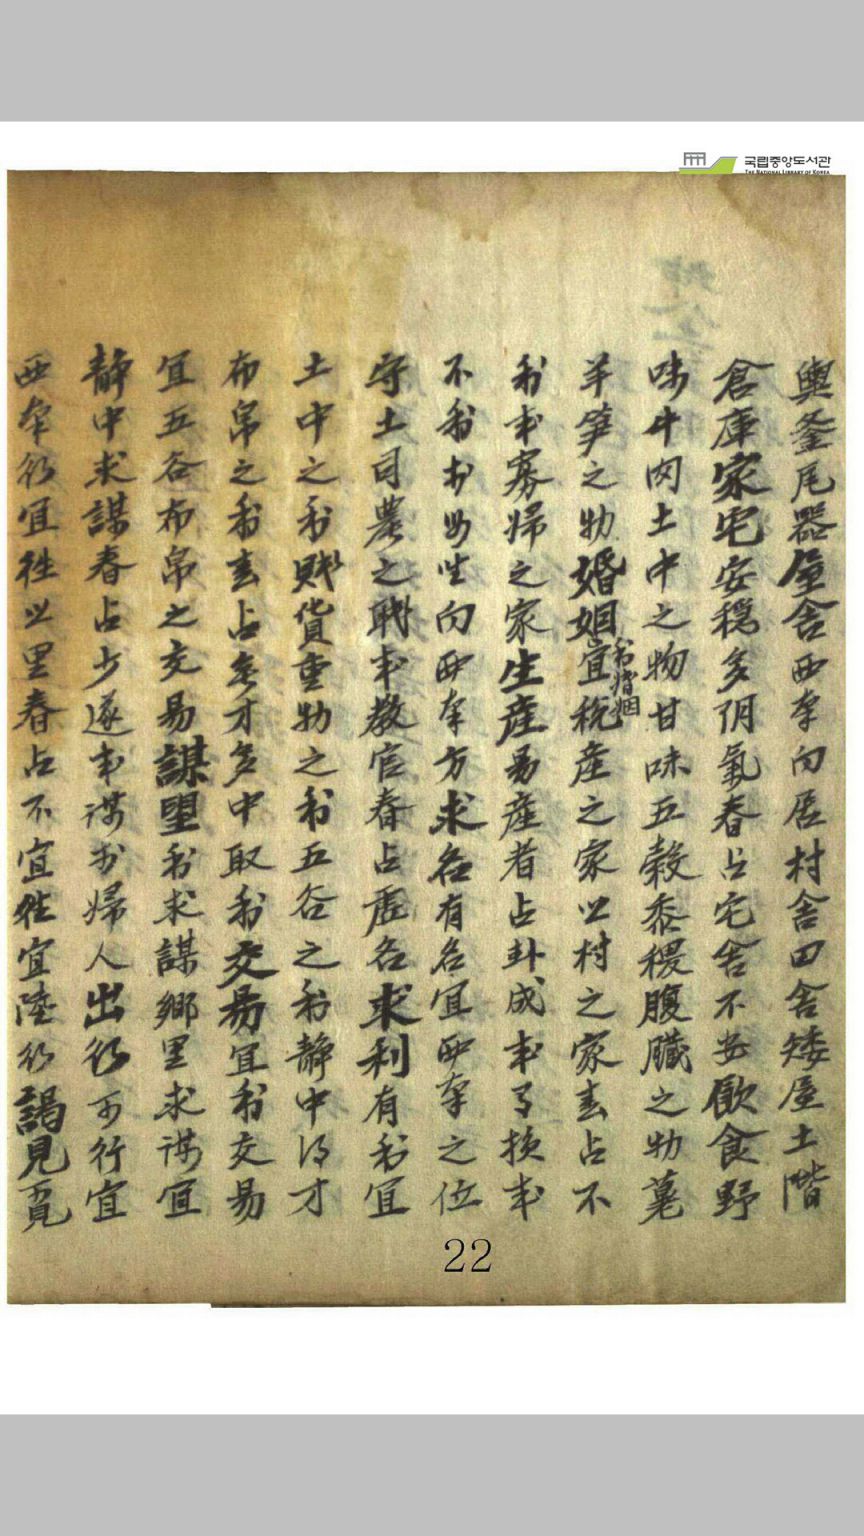 국립중앙도서관
THE NATIONAL LIBRARY OF KOREA
輿釜瓦器屋舍西南向居村舍田舍矮屋土階
倉庫家宅安穏多阴氣春占宅舍不安飮食野
味牛肉土中之物甘味五穀黍稷腹臟之物菫
羊笋之物婚姻宜税產之家以村之家春占不
利婚姻
利事寡婦之家生産易產春占卦成事了損事
不利於母坐向西南方求名有名宜西南之位
守土司農之職事教官春占虛名求利有利宜
土中之利賎貨重物之利五谷之利靜中得才
布帛之利春占多才多中取利交易宜利交易
宜五谷布帛之交易謀望利求謀鄉里求謀宜
靜中求謀春占少遂事謀於婦人出行可行宜
西南行宜往以里春占不宜往宜陸行謁見覓
22